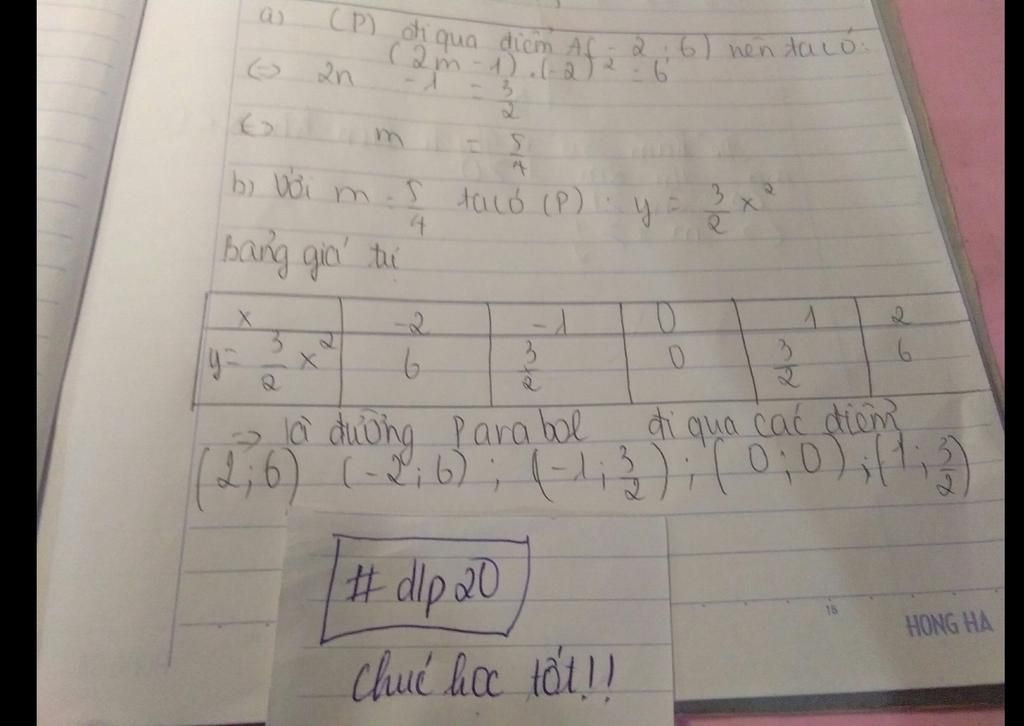 a) (P) đi qua điểm A(-2;6) nên ta có:
(2m-1).(-2)² = 6
<=> 2m - 1 = 3/2
<=> m = 5/4
b) Với m = 5/4 ta có (P): y = 3/2 x²
bảng giá trị
x -2 -1 0 1 2
y = 3/2 x² 6 3/2 0 3/2 6
=> là đường Parabol đi qua các điểm
(2;6) (-2;6); (-1;3/2); (0;0); (1;3/2)
# dlp20
chúc học tốt!!
18
HONG HA